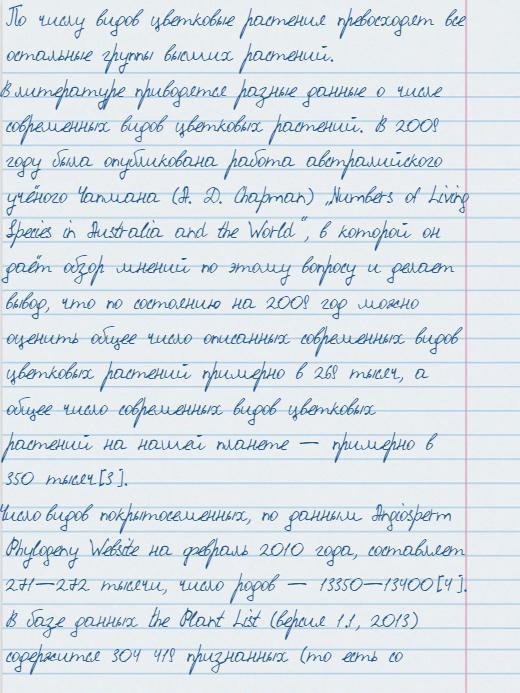 По числу видов цветковые растения превосходят все
остальные группы высших растений.
В литературе приводятся разные данные о числе
современных видов цветковых растений. В 2009
году была опубликована работа австралийского
учёного Чапмана (A. D. Chapman) „Numbers of Living
Species in Australia and the World“, в которой он
даёт обзор мнений по этому вопросу и делает
вывод, что по состоянию на 2009 год можно
оценить общее число описанных современных видов
цветковых растений примерно в 269 тысяч, а
общее число современных видов цветковых
растений на нашей планете — примерно в
350 тысяч[3].
Число видов покрытосеменных, по данным Angiosperm
Phylogeny Website на февраль 2010 года, составляет
271—272 тысячи, число родов — 13350—13400[4].
В базе данных the Plant List (версия 1.1, 2013)
содержится 304 419 признанных (то есть со